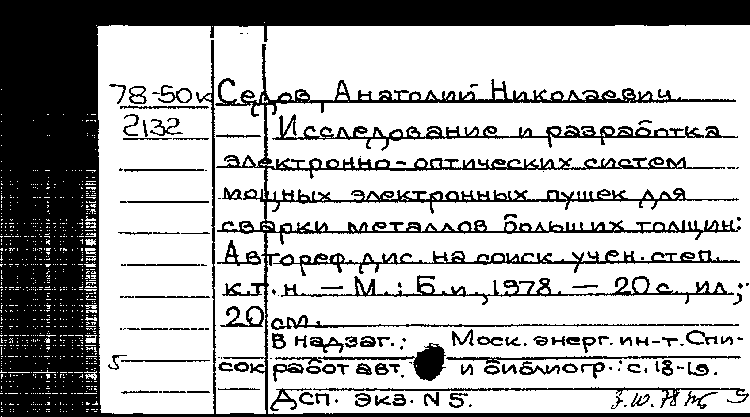 78-50к Седов, Анатолий Николаевич.
2132 Исследование и разработка
электронно-оптических систем
мощных электронных пушек для
сварки металлов больших толщин:
Автореф. дис. на соиск. учен. степ.
к.т.н. — М.: Б.и., 1978. — 20 с., ил.;
20 см.
В надзаг.: Моск. энерг. ин-т. Спи-
5 сок работ авт. и библиогр.: с. 18-19.
Дсп. Экз. N 5.